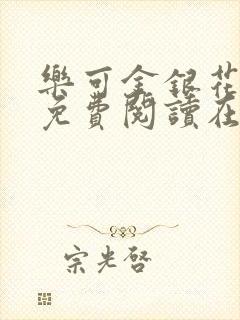 樂可金銀花
免費閱讀在
宗光啓